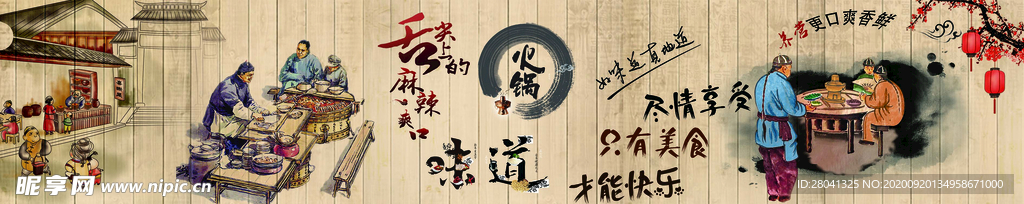 舌尖上的
麻辣、爽口
火锅
味道
好味道真地道
尽情享受
只有美食
才能快乐
养营更口爽香鲜
昵享网 www.nipic.cn
ID:28041325 NO:20200920134958671000